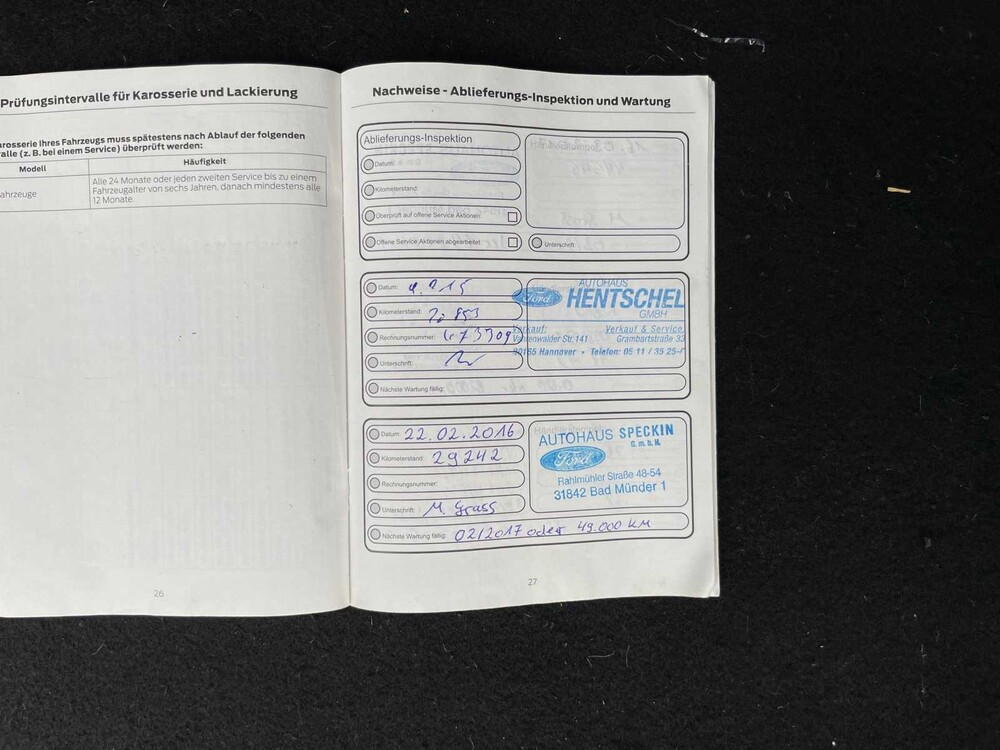 Prüfungsintervalle für Karosserie und Lackierung
arosserie Ihres Fahrzeugs muss spätestens nach Ablauf der folgenden
alle (z. B. bei einem Service) überprüft werden:
Modell Häufigkeit
ahrzeuge Alle 24 Monate oder jeden zweiten Service bis zu einem
Fahrzeugalter von sechs Jahren, danach mindestens alle
12 Monate.
26
Nachweise - Ablieferungs-Inspektion und Wartung
Ablieferungs-Inspektion
Datum:
Kilometerstand:
Überprüft auf offene Service Aktionen:
Offene Service Aktionen abgearbeitet:
Unterschrift:
Datum:
Kilometerstand:
Rechnungsnummer:
Unterschrift:
Nächste Wartung fällig:
AUTOHAUS
Ford HENTSCHEL
GMBH
Verkauf: Verkauf & Service
Vahrenwalder Str. 141 Grambartstraße
30165 Hannover • Telefon: 05 11 / 35 25-
Datum: 22.02.2016
Kilometerstand: 29242
Rechnungsnummer:
Unterschrift: M. Grass
Nächste Wartung fällig: 02/2017 oder 49.000 KM
AUTOHAUS SPECKIN
G.m.b.H.
Ford
Rahlmühler Straße 48-54
31842 Bad Münder 1
27